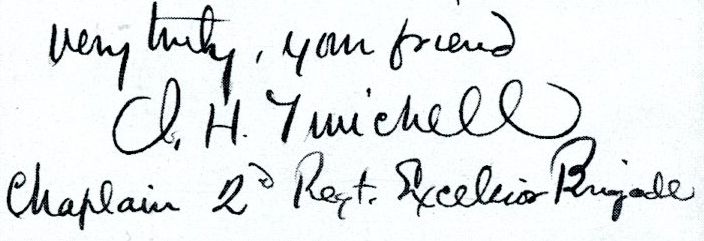 very truly, your friend
J. H. Twichell
Chaplain 2d Regt. Excelsior Brigade